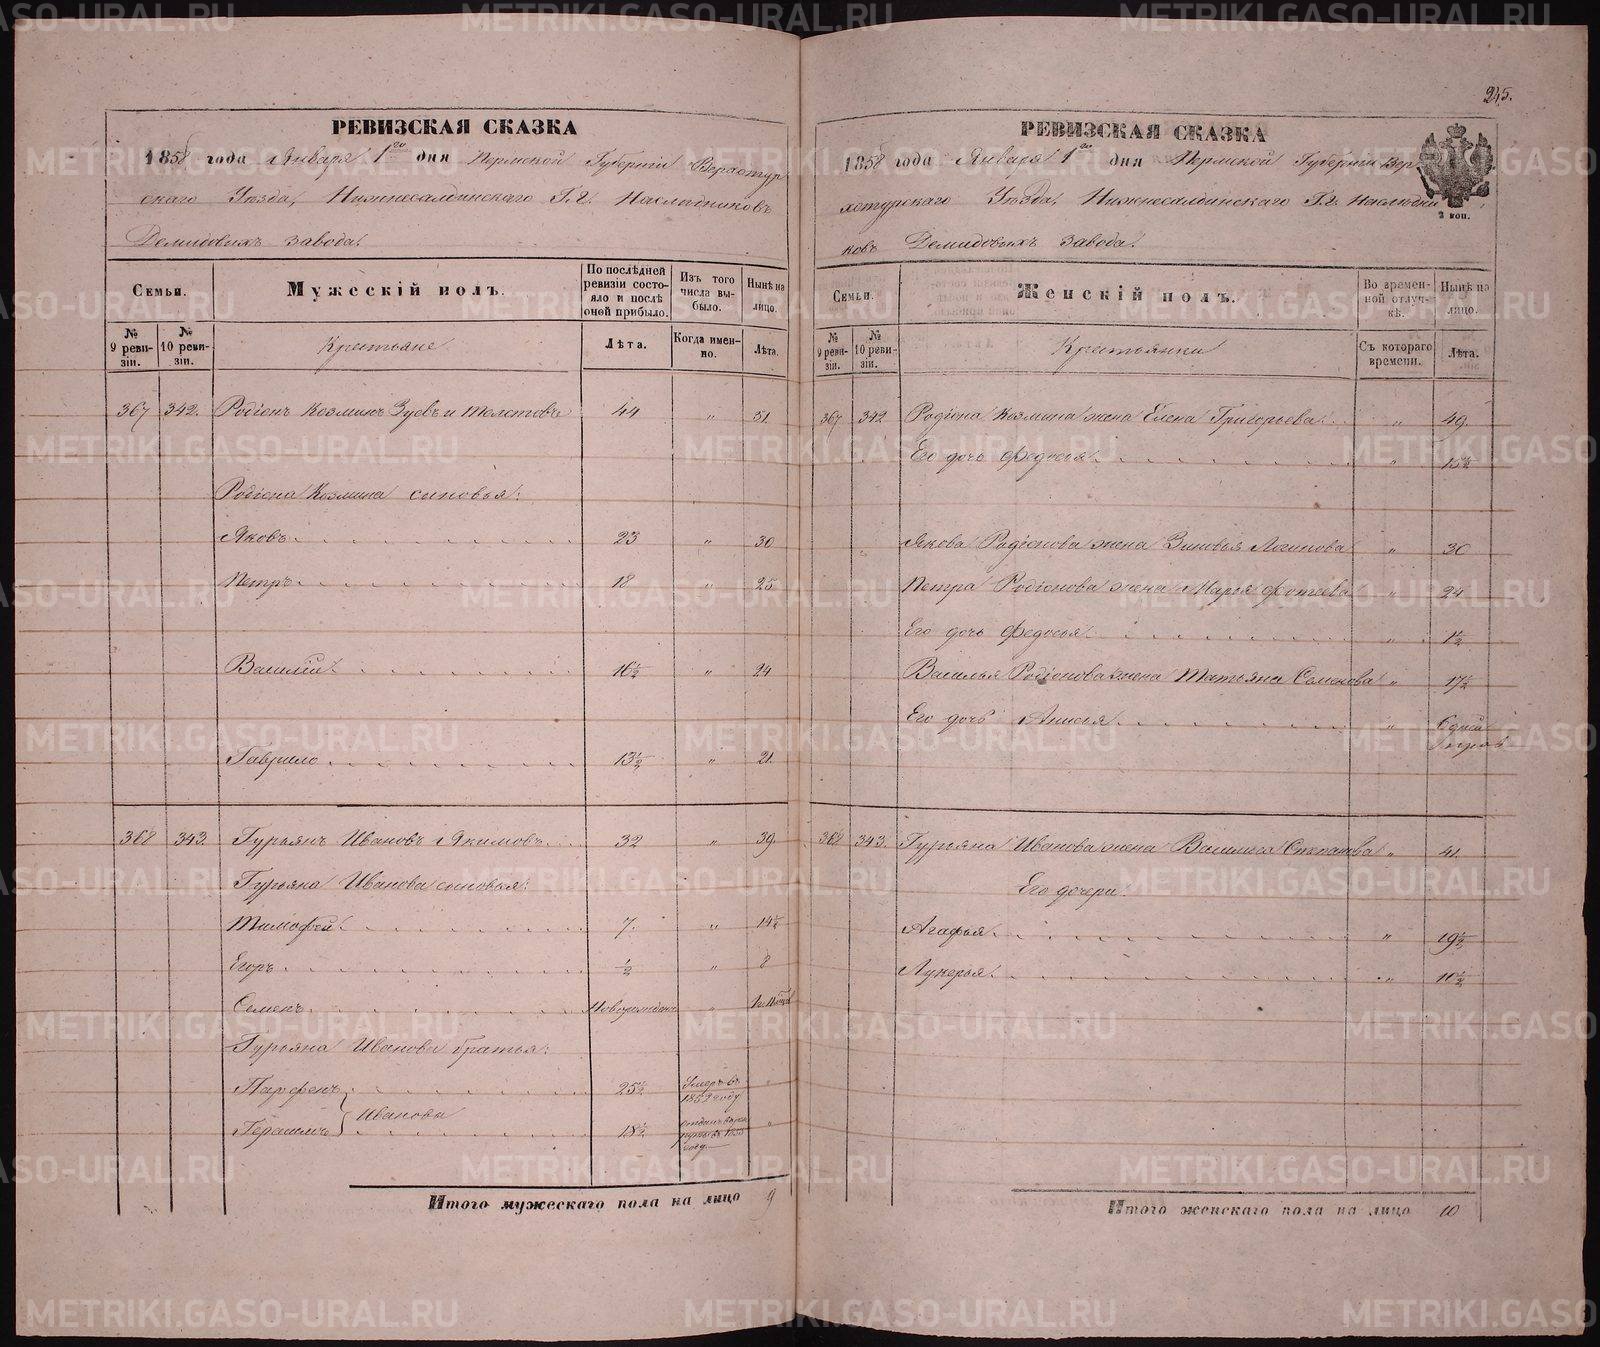 245.
РЕВИЗСКАЯ СКАЗКА
1858 года Января 1го дня Пермской Губернiи Верхотур
скаго Уѣзда, Нижнесалдинскаго Г.г. Наслѣдниковъ
Демидовыхъ завода.
Семьи.
Мужескiй полъ.
По послѣдней ревизiи состояло и послѣ оной прибыло.
Изъ того числа выбыло.
Нынѣ на лицо.
№ 9 ревизiи.
№ 10 ревизiи.
Крестьяне
Лѣта.
Когда именно.
Лѣта.
367 342. Родiонъ Козминъ Зуевъ и Толстовъ 44 " 51.
Родiона Козмина сыновья:
Яковъ 23 " 30
Петръ 18 " 25
Василiй 16½ " 24
Гаврило 13½ " 21.
368 343. Гурьянъ Ивановъ Якимовъ 32 " 39.
Гурьяна Иванова сыновья:
Тимофей 7. " 14½
Егоръ ½ " 8
Семенъ Новорожден "
Гурьяна Иванова братья:
Парфенъ 25½ Умеръ въ 1852 году "
Герасимъ } Иванова 18½ отданъ въ рекруты въ году. "
Итого мужескаго пола на лицо 9
РЕВИЗСКАЯ СКАЗКА
1858 года Января 1го дня Пермской Губернiи Вер
хотурскаго Уѣзда, Нижнесалдинскаго Г.г. Наслѣдни
ковъ Демидовыхъ завода.
2 коп.
Семьи.
Женскiй полъ.
Во временной отлучкѣ.
Нынѣ на лицо.
№ 9 ревизiи.
№ 10 ревизiи.
Крестьянки
Съ котораго времени.
Лѣта.
367 342 Родiона Козмина жена Елена Григорьева " 49.
Его дочь Федосья " 15½
Якова Родiонова жена Зиновья Логинова " 30
Петра Родiонова жена Марья Фотеева " 24
Его дочь Федосья " 1½
Василья Родiонова жена Татьяна Семенова " 17½
Его дочь Анисья "
368 343. Гурьяна Иванова жена Василиса Степанова " 41.
Его дочери:
Агафья " 19½
Лукерья " 10½
Итого женскаго пола на лицо 10
METRIKI.GASO-URAL.RU